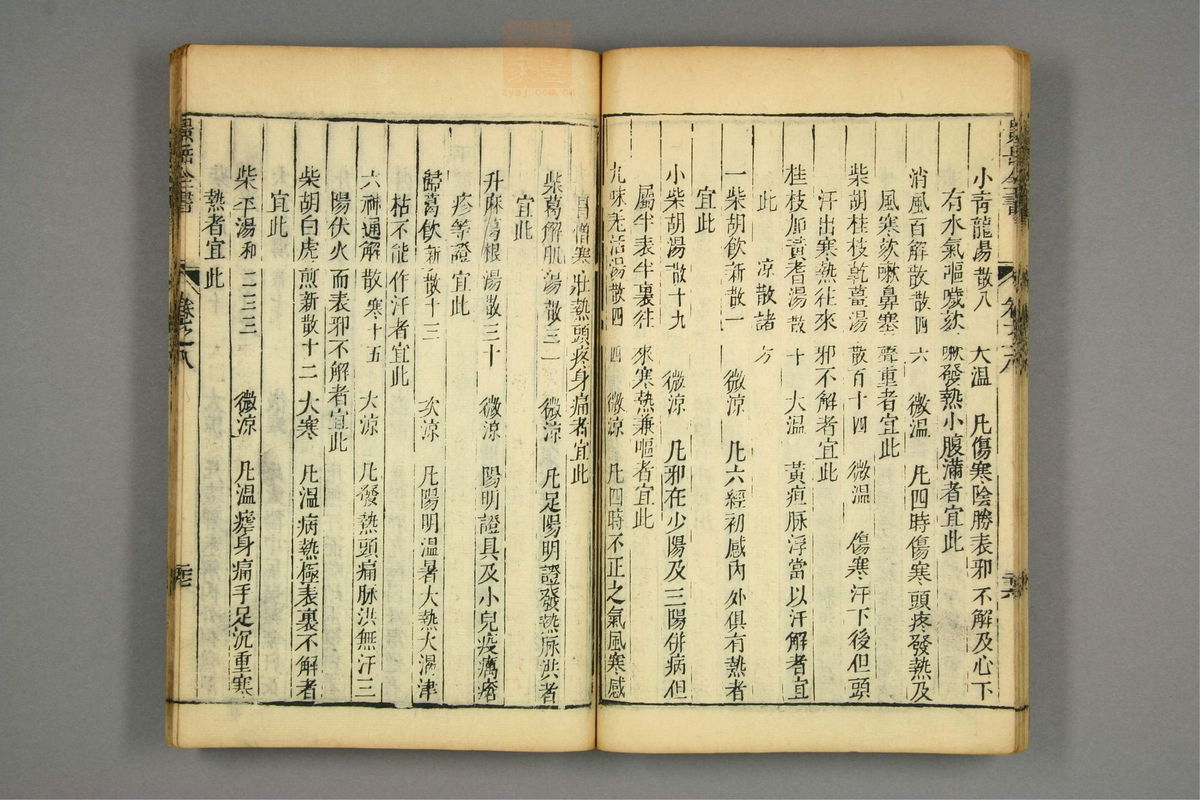 小青龍湯散八 大温 凡傷寒陰勝表邪不解及心下
有水氣嘔噦欬嗽發熱小腹滿者宜此
消風百解散散四六 微温 凡四時傷寒頭疼發熱及
風寒欬嗽鼻塞聲重者宜此
柴胡桂枝乾薑湯散百十四 微温 傷寒汗下後但頭
汗出寒熱往來邪不解者宜此
桂枝加黃耆湯散十 大温 黃疸脉浮當以汗解者宜
此 凉散諸方
一柴胡飲新散一 微凉 凡六經初感内外俱有熱者
宜此
小柴胡湯散十九 微凉 凡邪在少陽及三陽併病但
屬半表半裏往來寒熱兼嘔者宜此
九味羌活湯散四四 微凉 凡四時不正之氣風寒感
冒憎寒壯熱頭疼身痛者宜此
柴葛解肌湯散三一 微凉 凡足陽明證發熱脉洪者
宜此
升麻葛根湯散三十 微凉 陽明證具及小兒疫癘瘡
疹等證宜此
歸葛飲新散十三 次凉 凡陽明温暑大熱大渴津
枯不能作汗者宜此
六神通解散寒十五 大凉 凡發熱頭痛脉洪無汗三
陽伏火而表邪不解者宜此
柴胡白虎煎新散十二 大寒 凡温病熱極表裏不解者
宜此
柴平湯和二三三 微凉 凡温瘧身痛手足沉重寒
熱者宜此
景岳全書
卷之八